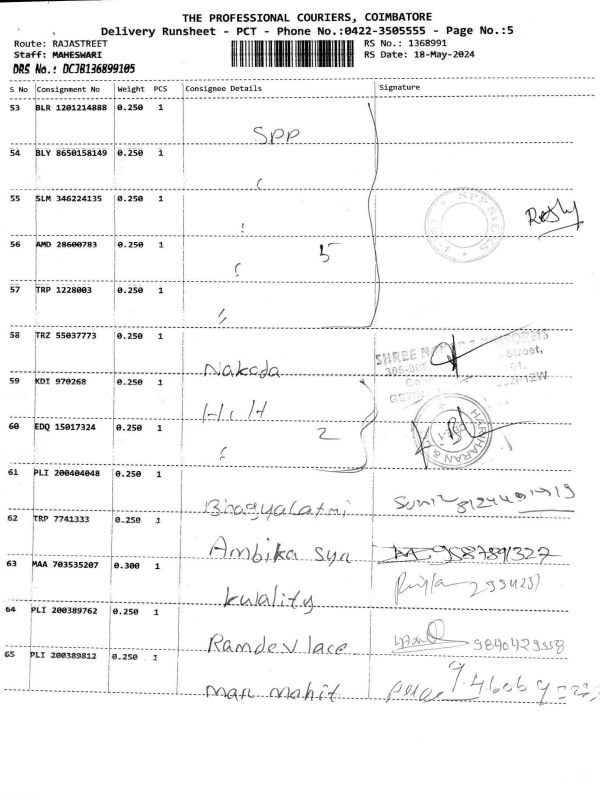 THE PROFESSIONAL COURIERS, COIMBATORE
Delivery Runsheet - PCT - Phone No.:0422-3505555 - Page No.:5
Route: RAJASTREET RS No.: 1368991
Staff: MAHESWARI RS Date: 18-May-2024
DRS No.: DCJB136899105
S No Consignment No Weight PCS Consignee Details Signature
53 BLR 1201214888 0.250 1
SPP
54 BLY 8650158149 0.250 1
55 SLM 346224135 0.250 1
SPP SILKS
56 AMD 28600783 0.250 1
5
57 TRP 1228003 0.250 1
58 TRZ 55037773 0.250 1
Nakoda
SHREE
Street,
59 KDI 970268 0.250 1
H.C.H
60 EDQ 15017324 0.250 1
2
HARIHARAN &
61 PLI 200404048 0.250 1
Bhagyalatmi
62 TRP 7741333 0.250 1
Ambika syn
63 MAA 703535207 0.300 1
kulality
64 PLI 200389762 0.250 1
Ramdev lace 9840429558
65 PLI 200389812 0.250 1
man mohit